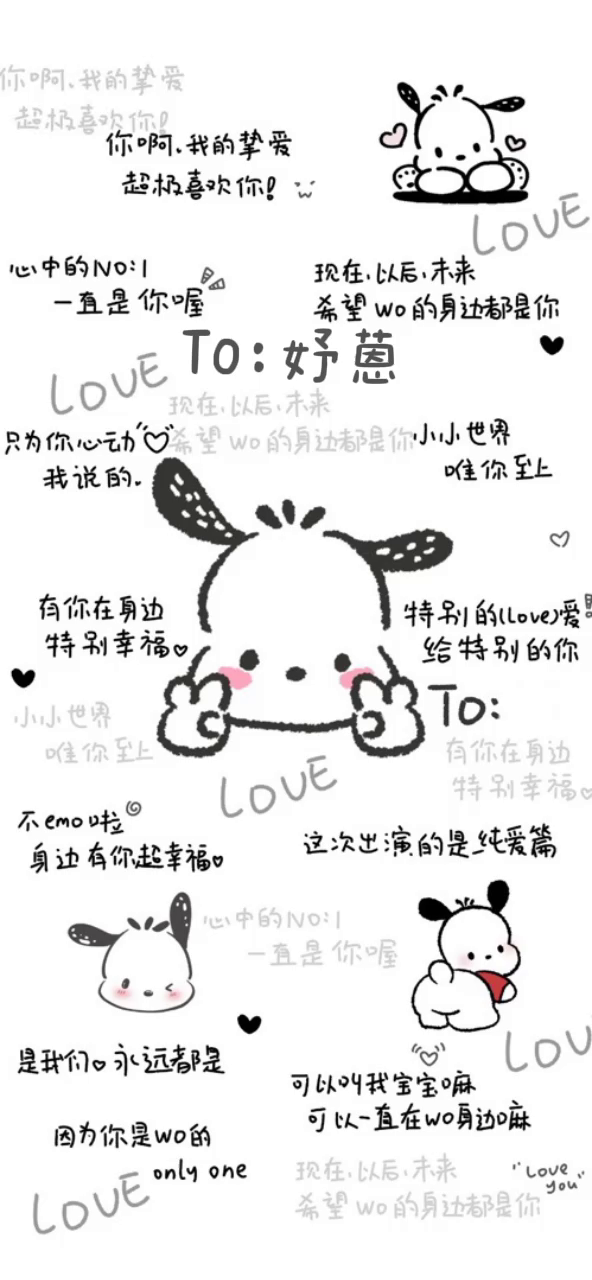 你啊、我的挚爱
超极喜欢你!
你啊、我的挚爱
超极喜欢你!
LOVE
心中的NO:1
一直是你喔
现在、以后、未来
希望wo的身边都是你
To: 妤蒽
LOVE
现在、以后、未来
希望wo的身边都是你
只为你心动
我说的.
小小世界
唯你至上
有你在身边
特别幸福
特别的(Love)爱
给特别的你
To:
小小世界
唯你至上
有你在身边
特别幸福
LOVE
不emo啦
身边有你超幸福
这次出演的是纯爱篇
心中的NO:1
一直是你喔
LOV
是我们永远都是
可以叫我宝宝嘛
可以一直在wo身边嘛
因为你是wo的
only one
现在、以后、未来
希望wo的身边都是你
"Love
you"
LOVE